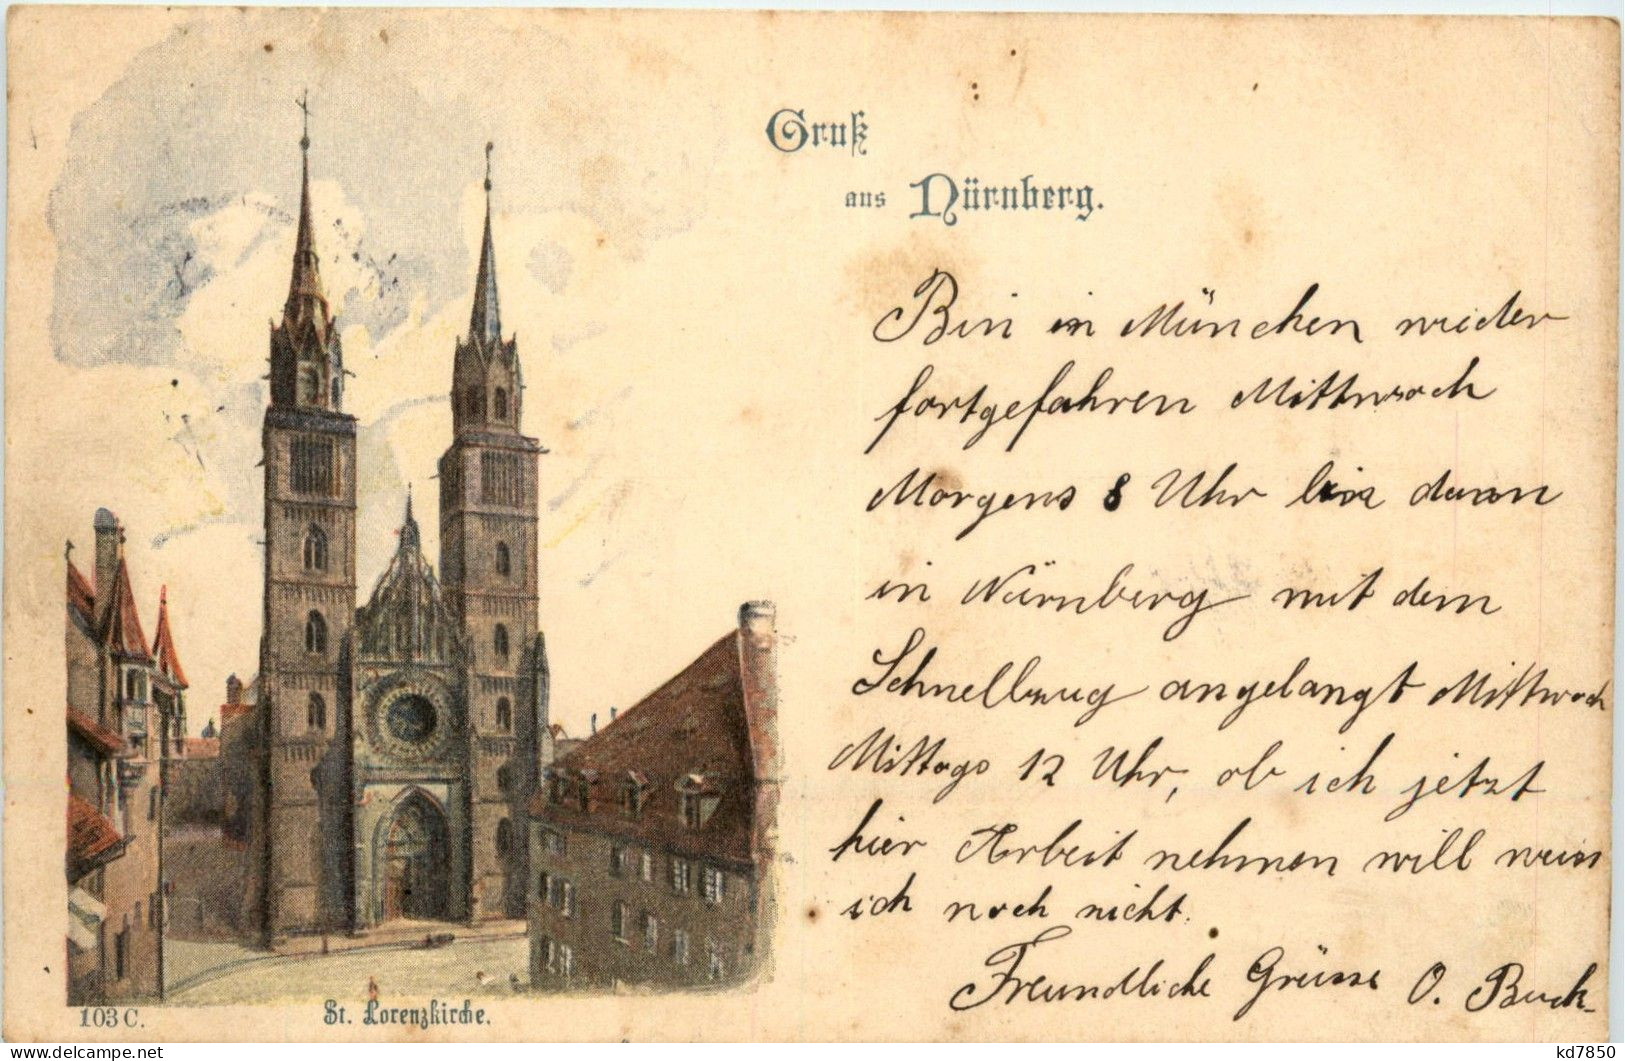 Gruß
aus Nürnberg.
Bin in München wieder
fortgefahren Mittwoch
Morgens 8 Uhr bin dann
in Nürnberg mit dem
Schnellzug angelangt Mittwoch
Mittags 12 Uhr, ob ich jetzt
hier Arbeit nehmen will weiss
ich noch nicht.
Freundliche Grüsse O. Buck.
103 C.
St. Lorenzkirche.
www.delcampe.net
kd7850